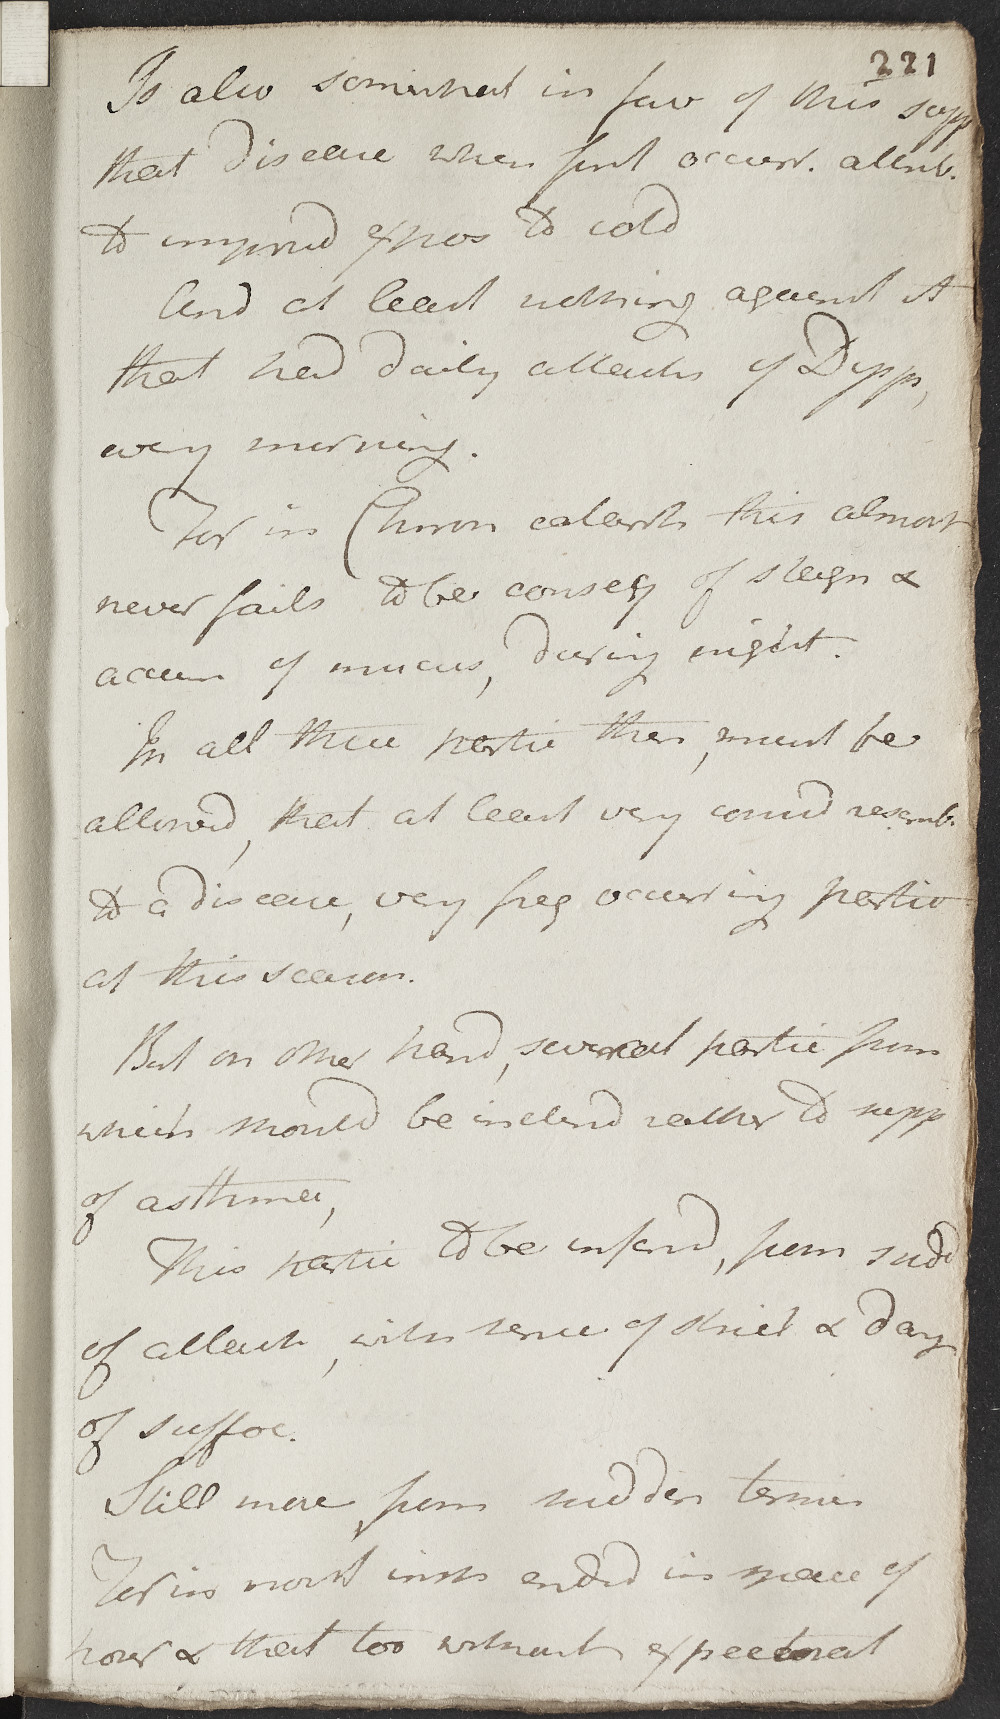 221
Is also somewhat in fav of this supp
that disease when first occurr. attrib.
to imprud expos to cold
And at least nothing against it
that had daily attacks of Dysps,
every morning.
For in Chron catarrh this almost
never fails to be conseq of stagn &
accum of mucus, during night.
In all these partic then, must be
allowed, that at least very consid resemb.
to a disease, very freq occurring partic
at this season.
But on other hand, several partic from
which should be inclind rather to supp
of asthma,
This partic to be inferd, from sudd
of attack, with sense of strict & dang
of suffoc.
Still more, from sudden termin
For in most insts endd in space of
hour & that too without expectorat